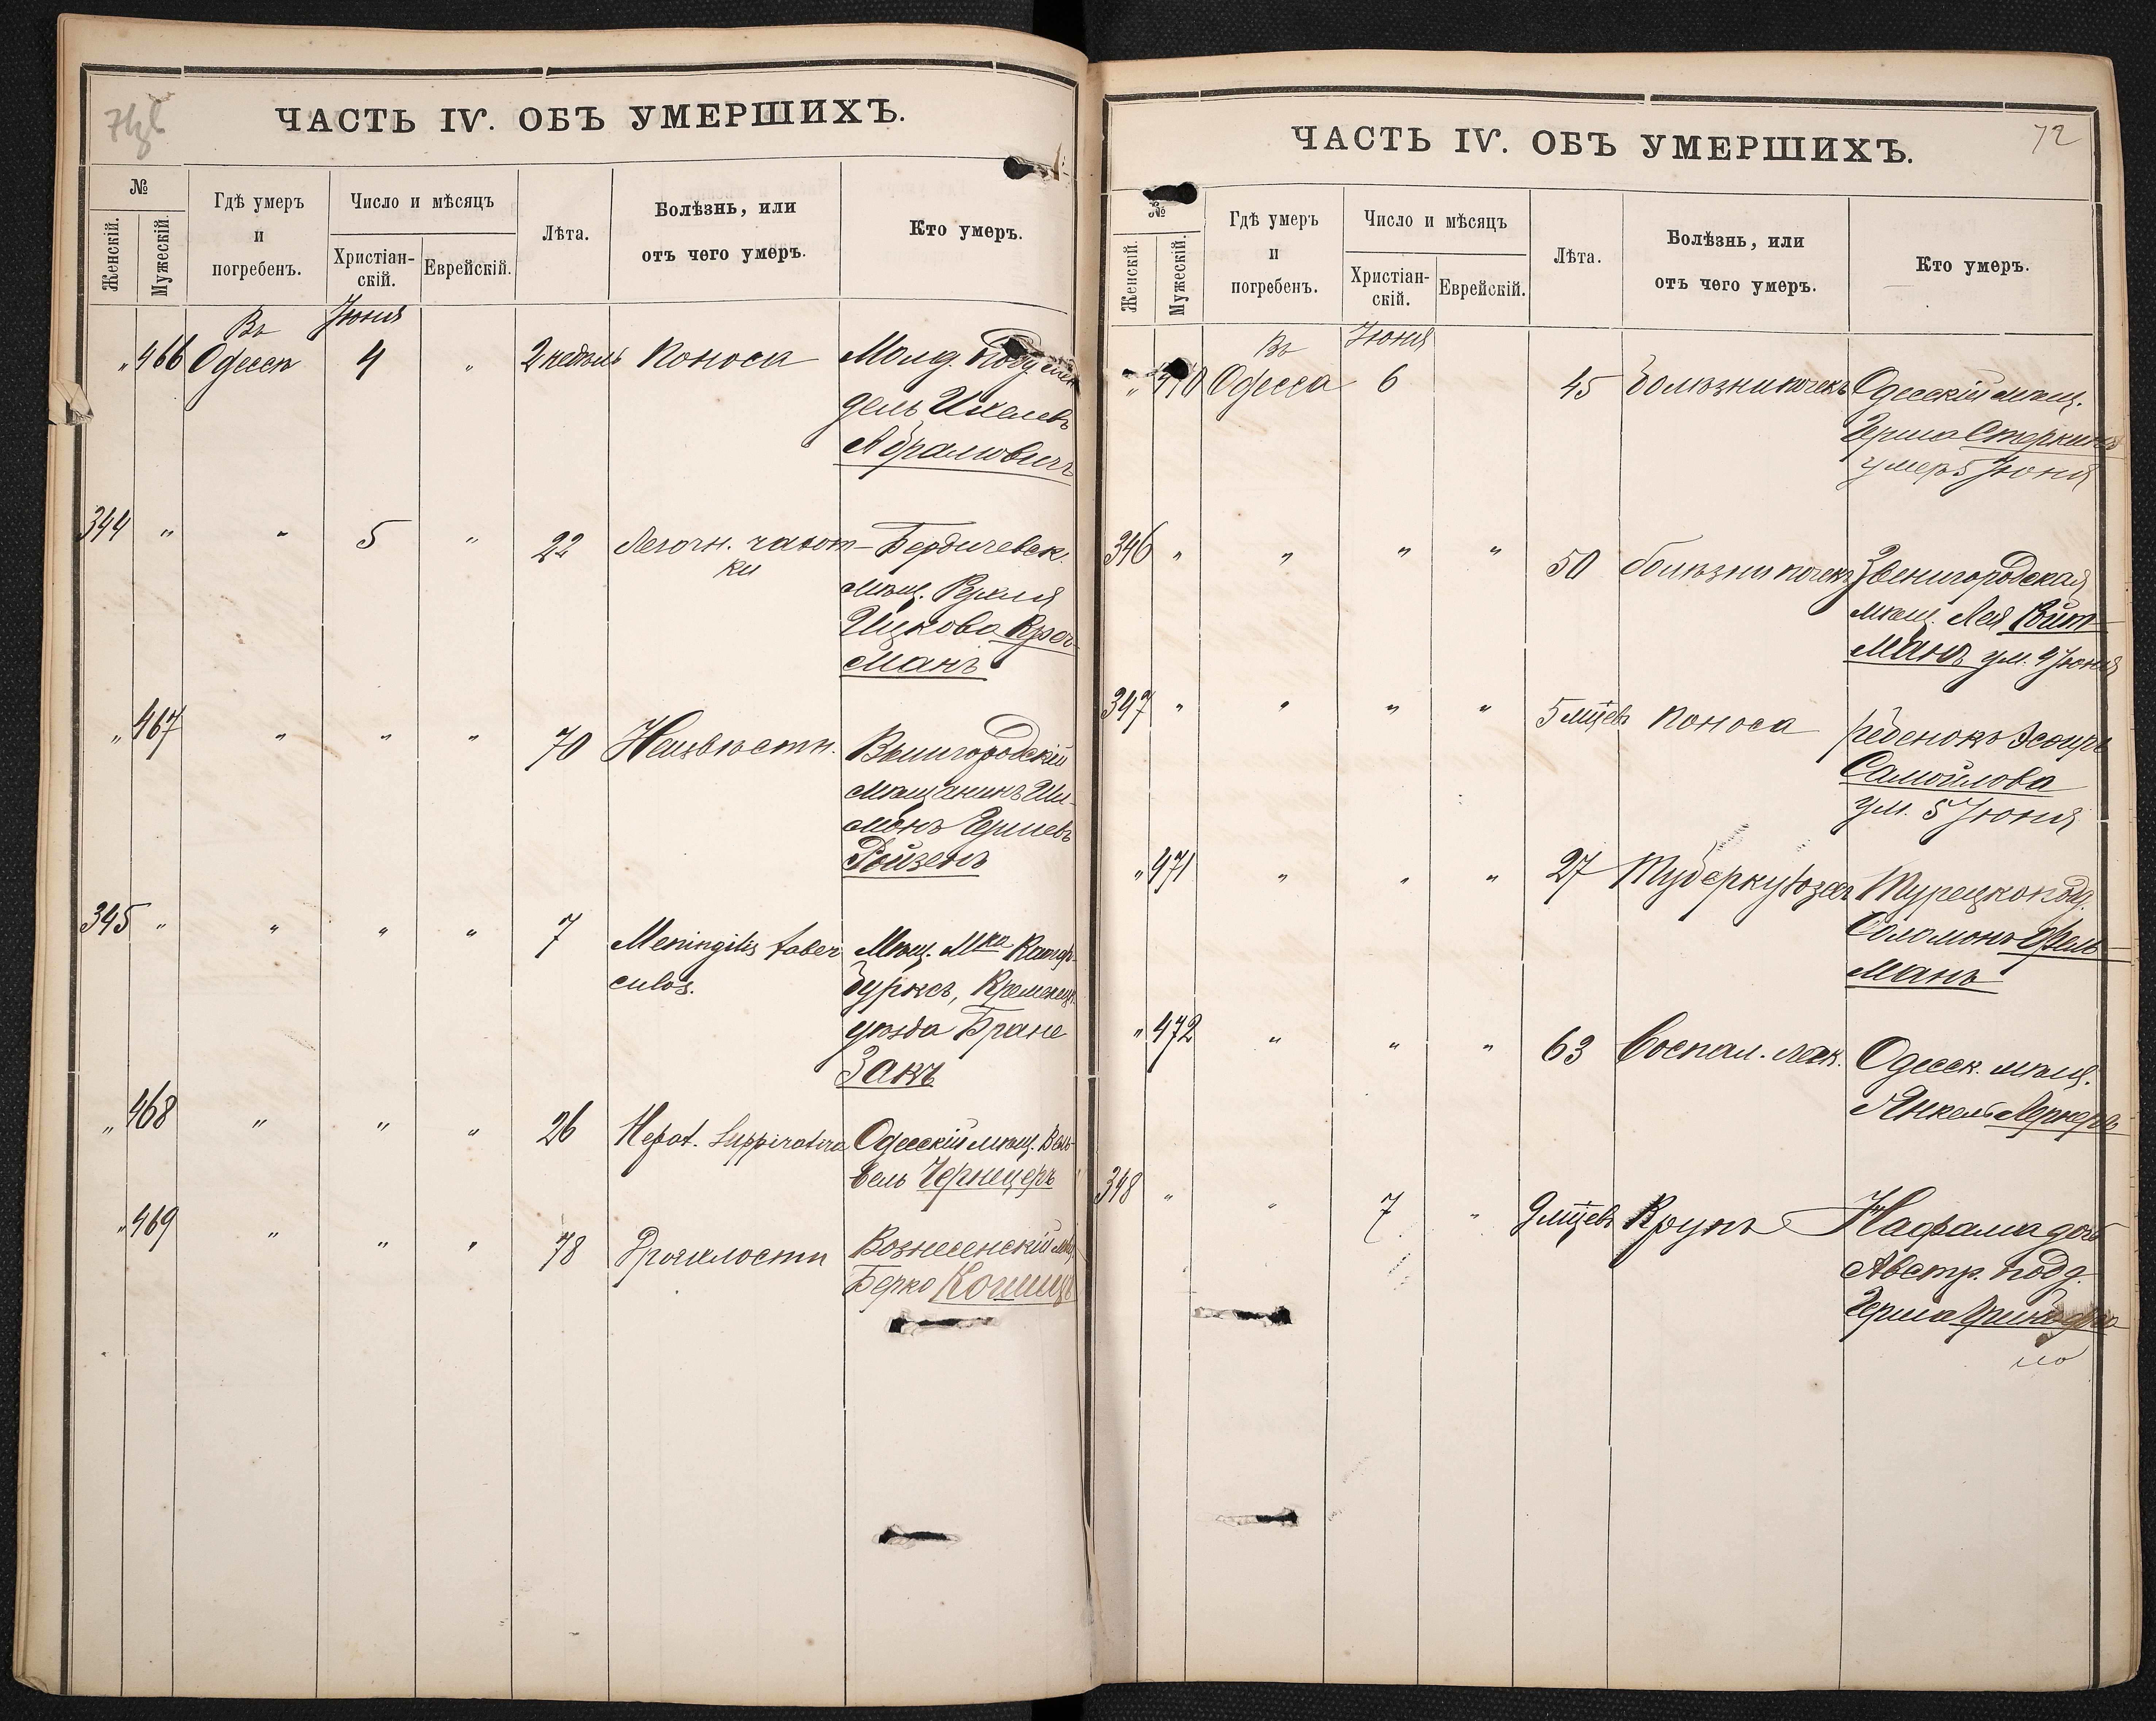 ЧАСТЬ IV. ОБЪ УМЕРШИХЪ.
№
Женскій.
Мужескій.
Гдѣ умеръ
и
погребенъ.
Число и мѣсяцъ
Христіан-
скій.
Еврейскій.
Лѣта.
Болѣзнь, или
отъ чего умеръ.
Кто умеръ.
Въ Іюня
" 466 Одессѣ 4 " 2 недѣль Поноса Молд. Подд.
дель Ицковъ
Абрамовичъ
344 " " 5 " 22 Легочн. чахот- Бердичевск.
ки
мѣщ.
Ицкова Крас-
манъ
" 467 " " " 70 Неизвѣстн. Вышгородскій
мѣщанинъ Ши-
монъ Гершевъ
Ройзенъ
345 " " " " 7 Meningitis tuber Мѣщ. Мка
culos.
бургъ, Кременецк.
уѣзда Бране
Закъ
" 468 " " " 26 Hepat. Suppirativa Одесскій мѣщ. Вель-
вель Чернецеръ
" 469 " " " 78 Дряхлости Вознесенскій мѣщ.
Берко
ЧАСТЬ IV. ОБЪ УМЕРШИХЪ.
72
№
Женскій.
Мужескій.
Гдѣ умеръ
и
погребенъ.
Число и мѣсяцъ
Христіан-
скій.
Еврейскій.
Лѣта.
Болѣзнь, или
отъ чего умеръ.
Кто умеръ.
Въ Іюня
" 470 Одесса 6 45 болѣзни почекъ Одесскій мѣщ.
Герша Стеркинъ
умеръ 5 Іюня
346 " " " " 50 болѣзни почекъ Звенигородская
мѣщ. Лея Вайт-
манъ ум. 4 Іюня
347 " " " " 5 мцевъ поноса ребенокъ Эсфирь
Самойлова
ум. 5 Іюня
" 471 " " " 27 Туберкулюзъ Турецкоподд.
Соломонъ Фель-
манъ
" 472 " " " 63 Воспал. легк. Одесск. мѣщ.
Янкель Лернеръ
348 " " 7 " 9 мцевъ Крупъ дочь
Австр. подд.
Герша